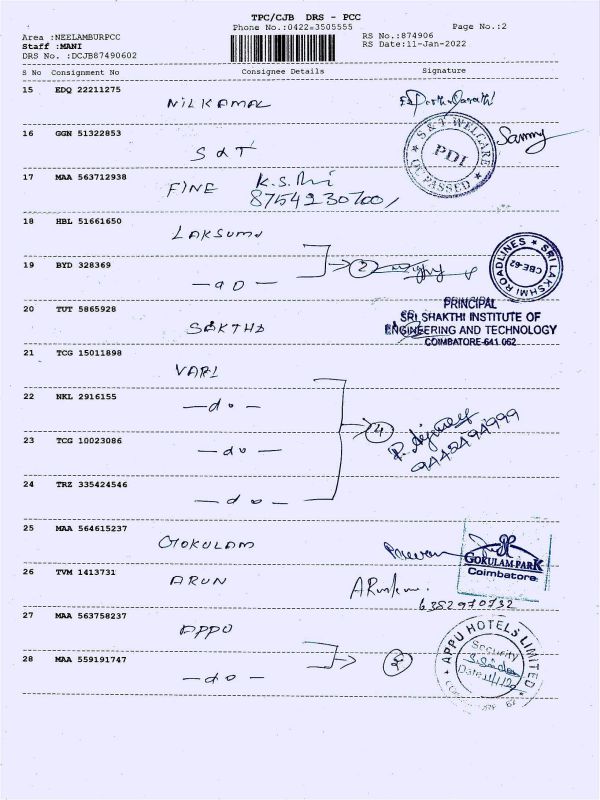 TPC/CJB DRS - PCC
Phone No.:0422-3505555 Page No.:2
Area :NEELAMBURPCC RS No.:874906
Staff :MANI RS Date:11-Jan-2022
DRS No. :DCJB87490602
S No Consignment No Consignee Details Signature
15 EDQ 22211275
NILKAMAL
16 GGN 51322853
S & T WELCARE
PDI
QC PASSED
Sammy
S & T
17 MAA 563712938
FINE
18 HBL 51661650
19 BYD 328369
2
SRI LAKSHMI ROADLINES
CBE-62
20 TUT 5865928
PRINCIPAL
SRI SHAKTHI INSTITUTE OF
ENGINEERING AND TECHNOLOGY
COIMBATORE-641 062
21 TCG 15011898
VARI
22 NKL 2916155
- do -
4
23 TCG 10023086
- do -
24 TRZ 335424546
- do -
25 MAA 564615237
GOKULAM
GOKULAM PARK
Coimbatore
26 TVM 1413731
ARUN
6382970732
27 MAA 563758237
APPU
28 MAA 559191747
- do -
APPU HOTELS LIMITED
Security
Date